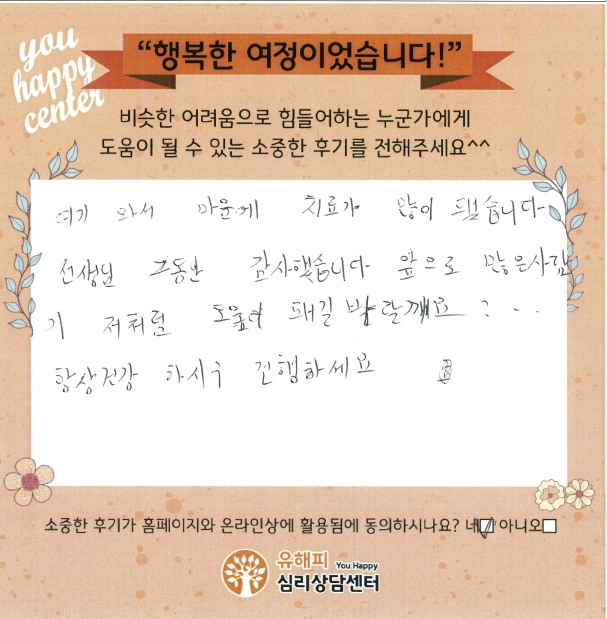 you
happy
center
“행복한 여정이었습니다!”
비슷한 어려움으로 힘들어하는 누군가에게
도움이 될 수 있는 소중한 후기를 전해주세요^^
여기 와서 마음에 치료가 많이 됐습니다
선생님 그동안 감사했습니다 앞으로 많은사람
저처럼 되길 바랄깨요 : ...
항상건강 하시구 진행하세요
소중한 후기가 홈페이지와 온라인상에 활용됨에 동의하시나요? 네 아니오
유해피 You Happy
심리상담센터